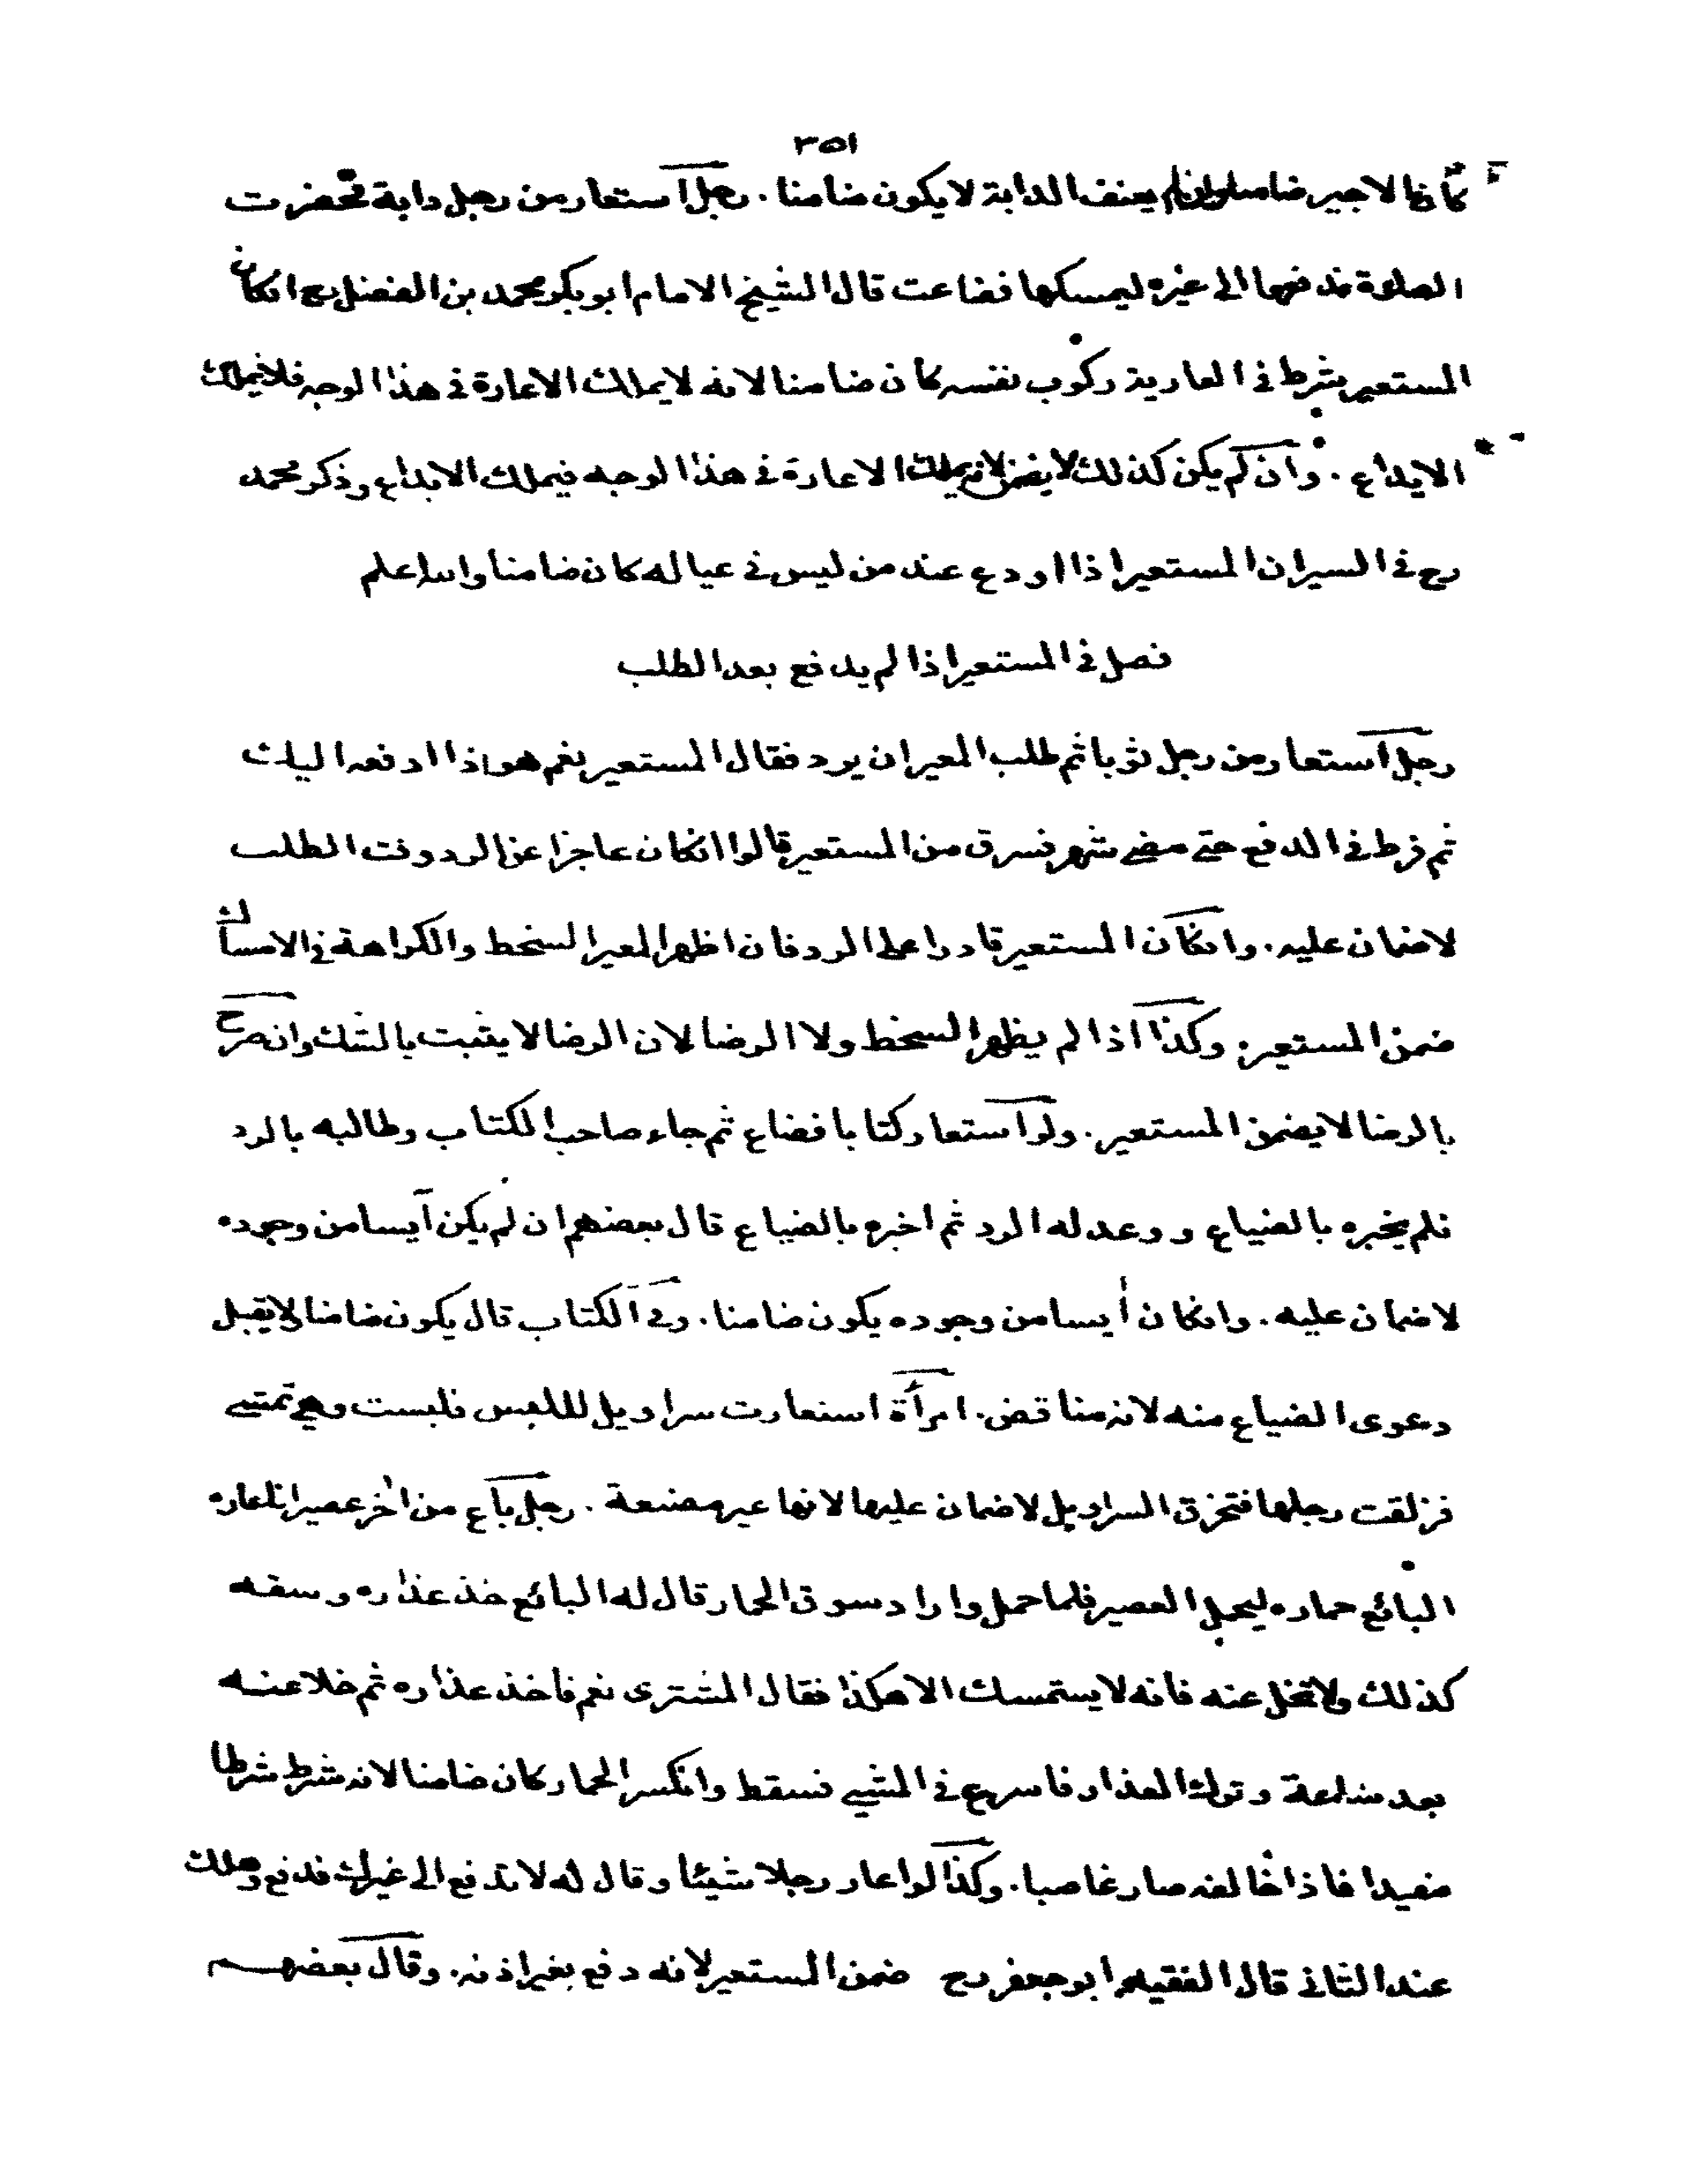 ٣٥١
كان الاجير ضامنا وان لم يعنف الدابة لا يكون ضامنا . رجل استعار من رجل دابة فحضرت
الصلوة فدفعها الى غيره ليمسكها فضاعت قال الشيخ الامام ابو بكر محمد بن الفضل رح انكان
المستعير شرط في العارية ركوب نفسه كان ضامنا لانه لا يملك الاعارة في هذا الوجه فلا يملك
الايداع . وان لم يكن كذلك لا يضمن لانه يملك الاعارة في هذا الوجه فيملك الايداع وذكر محمد
رح في السير ان المستعير اذا اودع عند من ليس في عياله كان ضامنا والله اعلم
فصل في المستعير اذا لم يدفع بعد الطلب
رجل استعار من رجل ثوبا ثم طلب المعير ان يرد فقال المستعير نعم هو ذا ادفعه اليك
ثم فرط في الدفع حتى مضى شهر فسرق من المستعير قالوا انكان عاجزا عن الرد وقت الطلب
لا ضمان عليه . وانكان المستعير قادرا على الرد فان اظهر المعير السخط والكراهة في الامساك
ضمن المستعير . وكذا اذا لم يظهر السخط ولا الرضا لان الرضا لا يثبت بالشك وان صرح
بالرضا لا يضمن المستعير . ولو استعار كتابا فضاع ثم جاء صاحب الكتاب وطالبه بالرد
فلم يخبره بالضياع ووعد له الرد ثم اخبره بالضياع قال بعضهم ان لم يكن آيسا من وجوده
لا ضمان عليه . وانكان أيسا من وجوده يكون ضامنا . وفي الكتاب قال يكون ضامنا ولا يقبل
دعوى الضياع منه لانه مناقض . امرأة استعارت سراويل لللبس فلبست وهي تمشي
فزلقت رجلها فتخرق السراويل لا ضمان عليها لانها غير مضيعة . رجل باع من اخر عصيرا فاعاره
البائع حماره ليحمل العصير فلما حمل واراد سوق الحمار قال له البائع خذ عذاره وسقه
كذلك ولا تخل عنه فانه لا يستمسك الا هكذا فقال المشترى نعم فاخذ عذاره ثم خلا عنه
بعد ساعة وترك العذار فاسرع في المشي فسقط وانكسر الحمار كان ضامنا لانه شرط شرطا
مفيدا فاذا خالفه صار غاصبا . وكذا لو اعار رجلا شيئا وقال له لا تدفع الى غيرك فدفع وهلك
عند الثاني قال الفقيه ابو جعفر رح ضمن المستعير لانه دفع بغير اذنه . وقال بعضهم